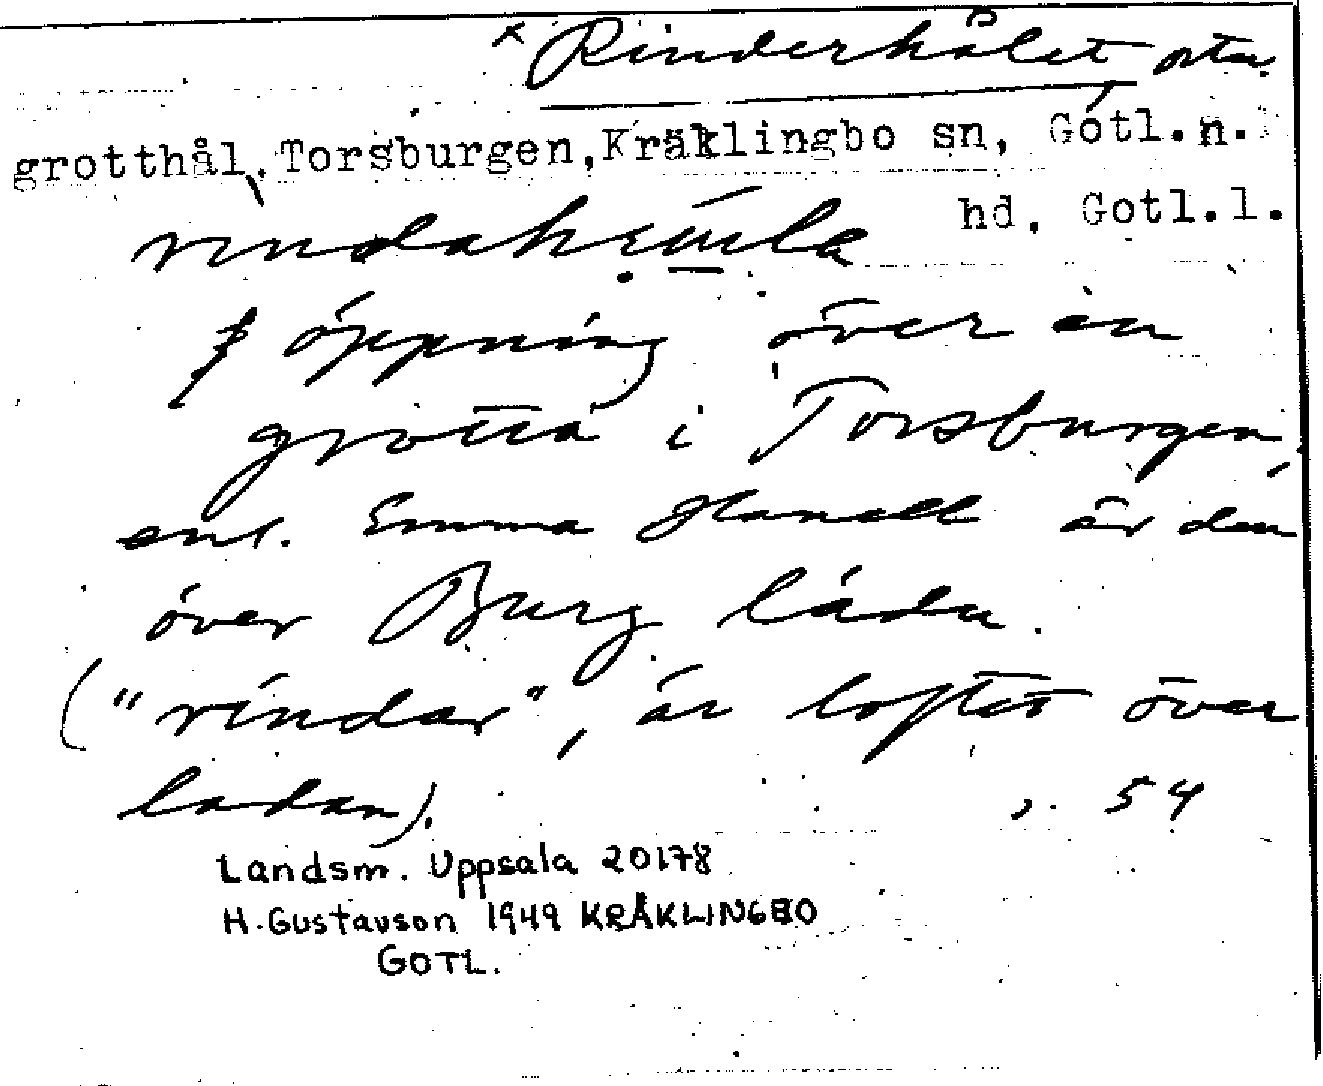 × Rinderhålet
grotthål, Torsburgen, Kräklingbo sn, Gotl.n.
hd, Gotl.l.
öppning över en
grotta i Torsburgen,
enl. Emma Hanell är den
över Burg lädu.
("rindar", är loftet över
ladan). 54
Landsm. Uppsala 20178
H. Gustavson 1949 KRÄKLINGBO
GOTL.